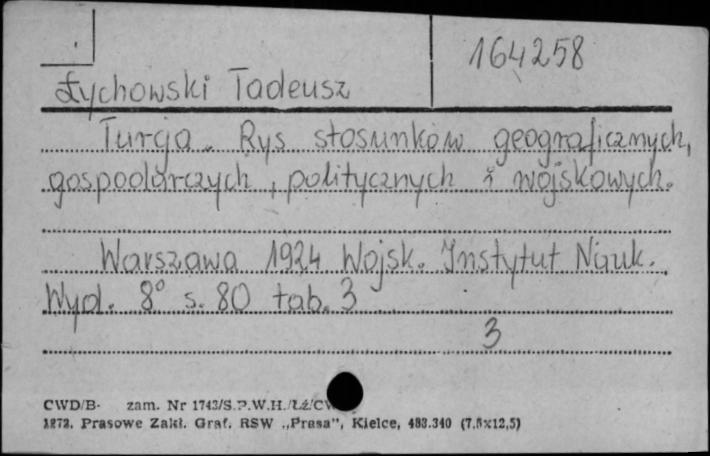 164258
Łychowski Tadeusz
Turcja. Rys stosunków geograficznych,
gospodarczych, politycznych i wojskowych.
Warszawa 1924 Wojsk. Instytut Nauk.
Wyd. 8° s. 80 tab. 3
3
CWD/B- zam. Nr 1743/S.P.W.H./Łź/
1272. Prasowe Zakł. Graf. RSW „Prasa", Kielce, 483.340 (7,5x12,5)